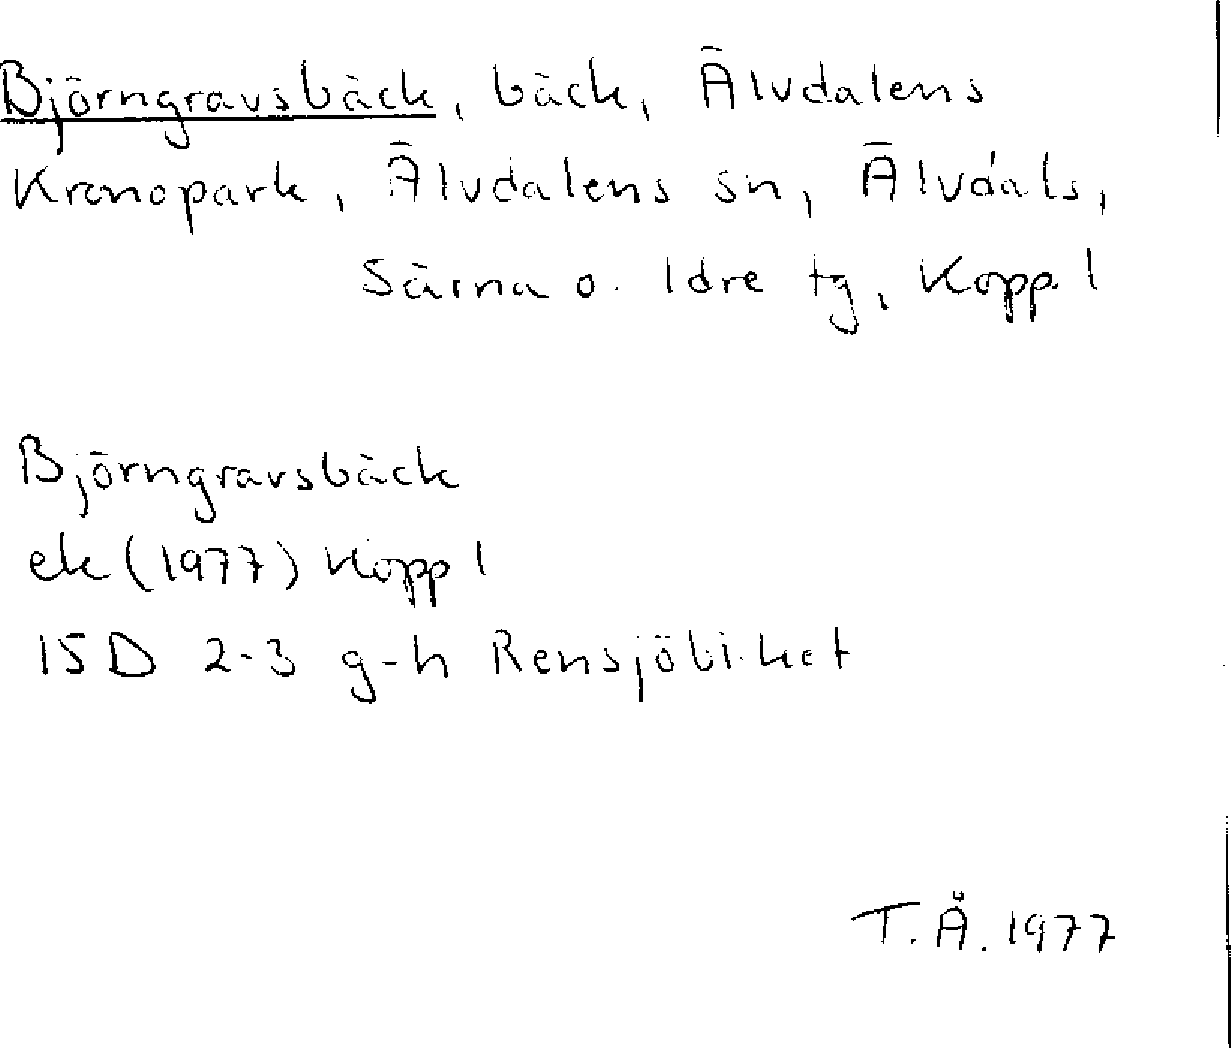 Björngravsbäck, bäck, Älvdalens
Kronopark, Älvdalens sn, Älvdals,
Särna o. Idre tg, Kopp. l
Björngravsbäck
ek (1977) Kopp l
15D 2-3 g-h Rensjöbiket
T.Å. 1977